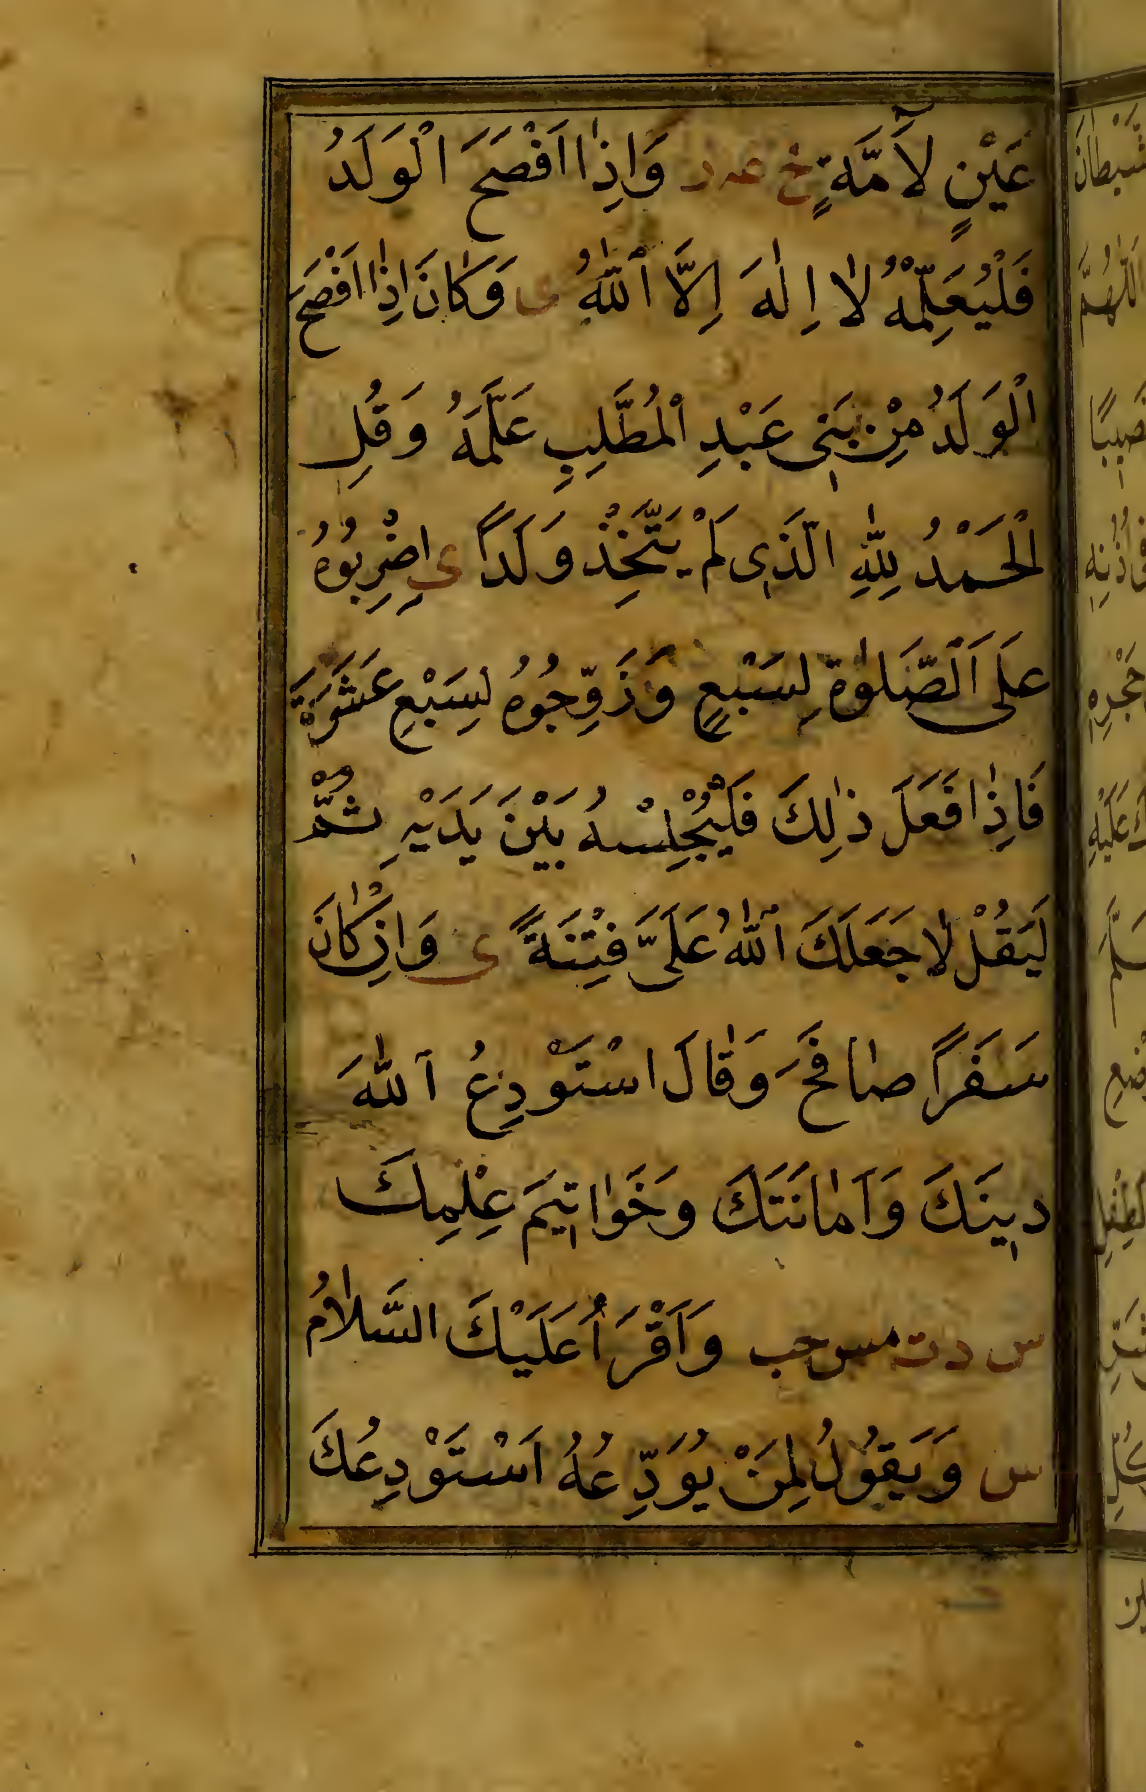 عَيْنٍ لَآمَّةٍ خ عه ر وَاِذَا اَفْصَحَ الْوَلَدُ
فَلْيُعَلِّمْهُ لَا اِلٰهَ اِلَّا اللّٰهُ ى وَكَانَ اِذَا اَفْصَحَ
الْوَلَدُ مِنْ بَنِى عَبْدِ الْمُطَّلِبِ عَلَّمَهُ وَقُلِ
الْحَمْدُ لِلّٰهِ الَّذِى لَمْ يَتَّخِذْ وَلَدًا ى اِضْرِبُوهُ
عَلَى الصَّلٰوةِ لِسَبْعٍ وَزَوِّجُوهُ لِسَبْعِ عَشْرَةَ
فَاِذَا فَعَلَ ذٰلِكَ فَلْيُجْلِسْهُ بَيْنَ يَدَيْهِ ثُمَّ
لْيَقُلْ لَا جَعَلَكَ اللّٰهُ عَلَىَّ فِتْنَةً ى وَاِنْ كَانَ
سَفَرًا صَافَحَ وَقَالَ اسْتَوْدِعُ اللّٰهَ
دِينَكَ وَاَمَانَتَكَ وَخَوَاتِيمَ عِلْمِكَ
س د ت مس حب وَاَقْرَاُ عَلَيْكَ السَّلَامُ
س وَيَقُولُ لِمَنْ يُوَدِّعُهُ اَسْتَوْدِعُكَ